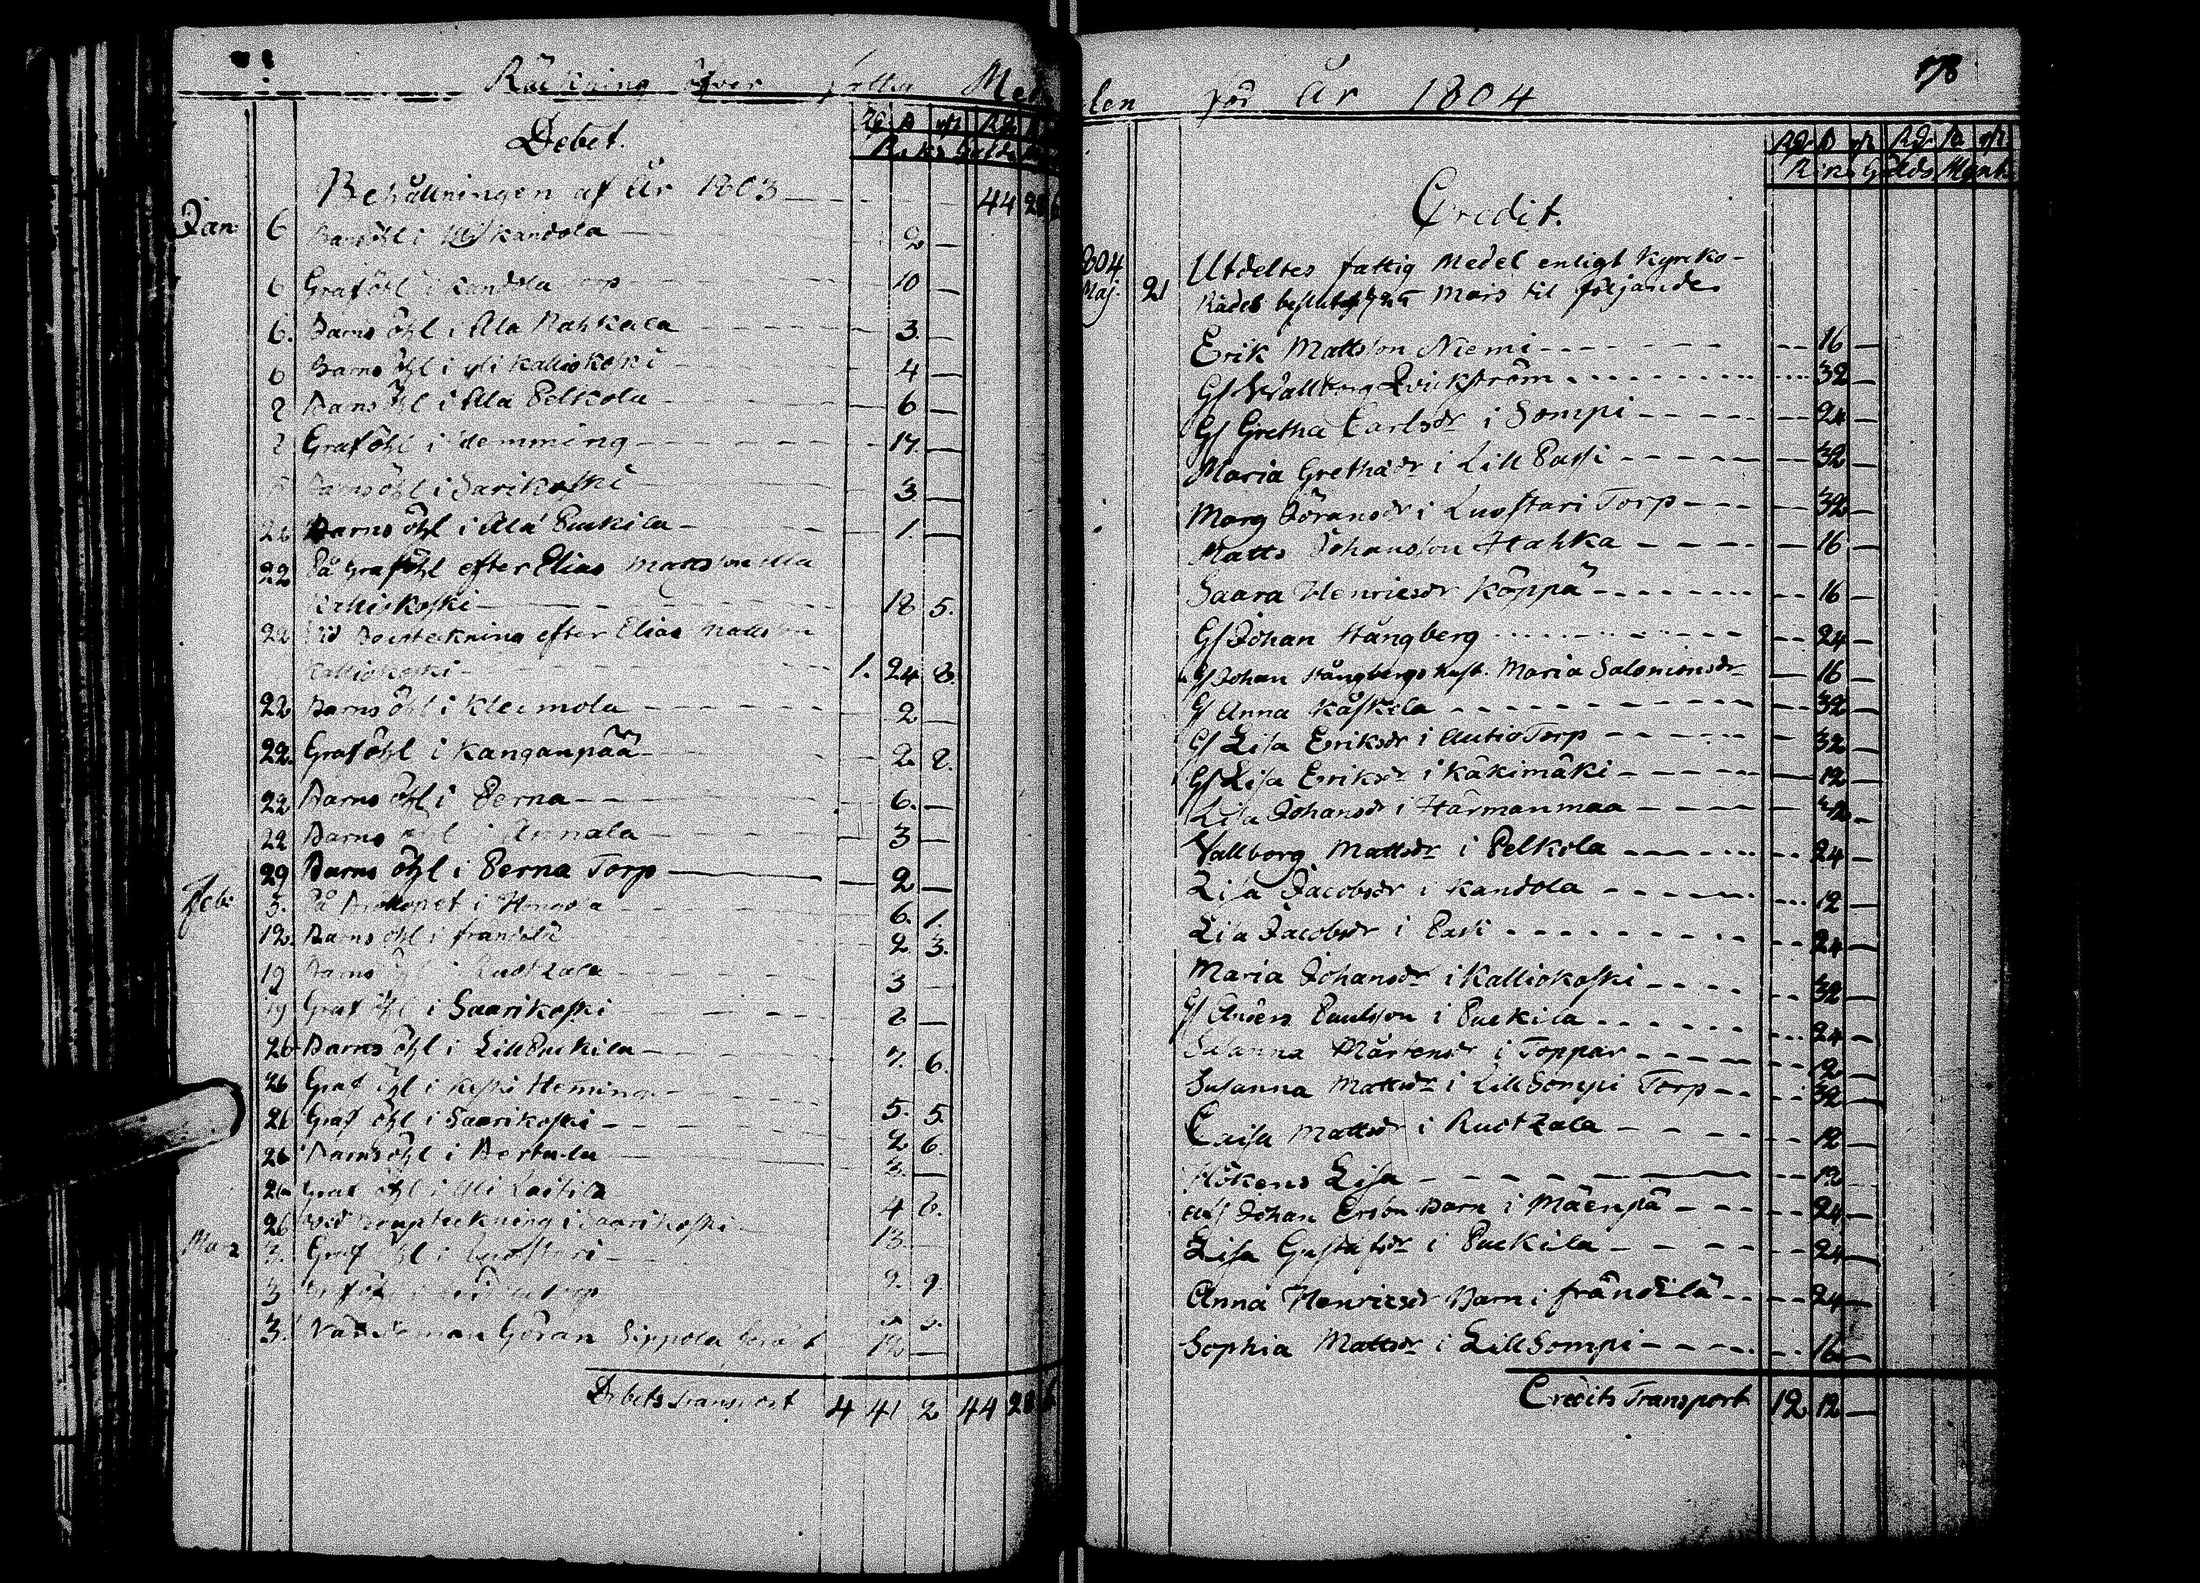 Räkning öfver fattig Med
Debet.
Rd ß rst Rd
Riks Gälds
Behållningen af År 1803 44 28 6
Jan: 6 Barns öhl i Kandola 2 —
6 Graföhl i Kandola Torp 10 —
6. Barns öhl i Ala Nahkala 3. —
6 Barns öhl i yli Kalliokoski 4 —
Barns öhl i Ala Pelkola 6 —
Graföhl i Hemming 17. —
Barns öhl i Sarikoski 3 —
22 Barns öhl i Ala Puckila 1. —
22 På Graföhl efter Elias Mattsson Ala
Kalliokoski 18 5.
22 Vid Bouteckning efter Elias Mattsson
Kalliokoski 1. 24 8.
22 Barns öhl i Kleemola 2 —
22. Graföhl i Kanganpää 2 2.
22 Barns öhl i Perna 6. —
22 Barns öhl i Annala 3 —
29 Barns öhl i Perna Torp 2 —
Feb: 5. På Bröllopet i 6. 1.
12. Barns öhl i frändilä 2 3.
19 Barns öhl i Ruotzala 3 —
19 Graf öhl i Saarikoski 2 —
26 Barns öhl i Lill Puckila 7. 6.
26 Graf öhl i Keski Heming 5. 5.
26 Graf öhl i Saarikoski 2 6.
26 Barns öhl i Pertula 3. —
26 Graf öhl i Yli Laitila 4 6.
26 Vid Bouppteckning i Saarikoski 13 —
Mars 3. Graf öhl i Luostari 2. 9.
3
3. Nämdeman Göran Sippola
Debets Transport 4 41 2 44 28 6
178
len för År 1804
Rd ß rst Rd ß rst
Riks Gälds Mynt
Credit.
1804
Maj. 21 Utdeltes fattig Medel enligt Kyrko-
Rådets beslut af d. 25 Mars til följande
Erik Mattsson Niemi 16 —
G/ Wallborg Qvickström 32 —
G/ Gretha Carlsdr i Sompi 24 —
Maria Grethasdr i Lill Passi 32 —
Marg Göransdr i Luostari Torp 32 —
Matts Johansson Hahka 16 —
Saara Henricsdr Köppä 16 —
G/ Johan Stångberg 24 —
G/ Johan Stångbergs hust. Maria Salomonsdr 16 —
G/ Anna Käskela 32 —
G/ Lisa Eriksdr i Autio Torp 32 —
G/ Lisa Eriksdr i Käkimäki 12 —
Lisa Johansdr i Härmanmaa 32 —
Vallborg Mattsdr i Pelkola 24 —
Lisa Jacobsdr i Kandola 12 —
Lisa Jacobsdr i Passi 24 —
Maria Johansdr i Kalliokoski 32 —
G/ Anders Paulsson i Puckila 24 —
Susanna Mårtensdr i Toppar 12 —
Susanna Mattsdr i Lill Sompi Torp 32 —
Caisa Mattsdr i Ruotzala 12 —
Hökens Lisa 12 —
Johan Ersons Barn i Mäenpä 24 —
Lisa Gustafsdr i Puckila 24 —
Anna Henricsdr Barn i frändilä 24 —
Sophia Mattsdr i Lill Sompi 16 —
Credits Transport 12 12 —